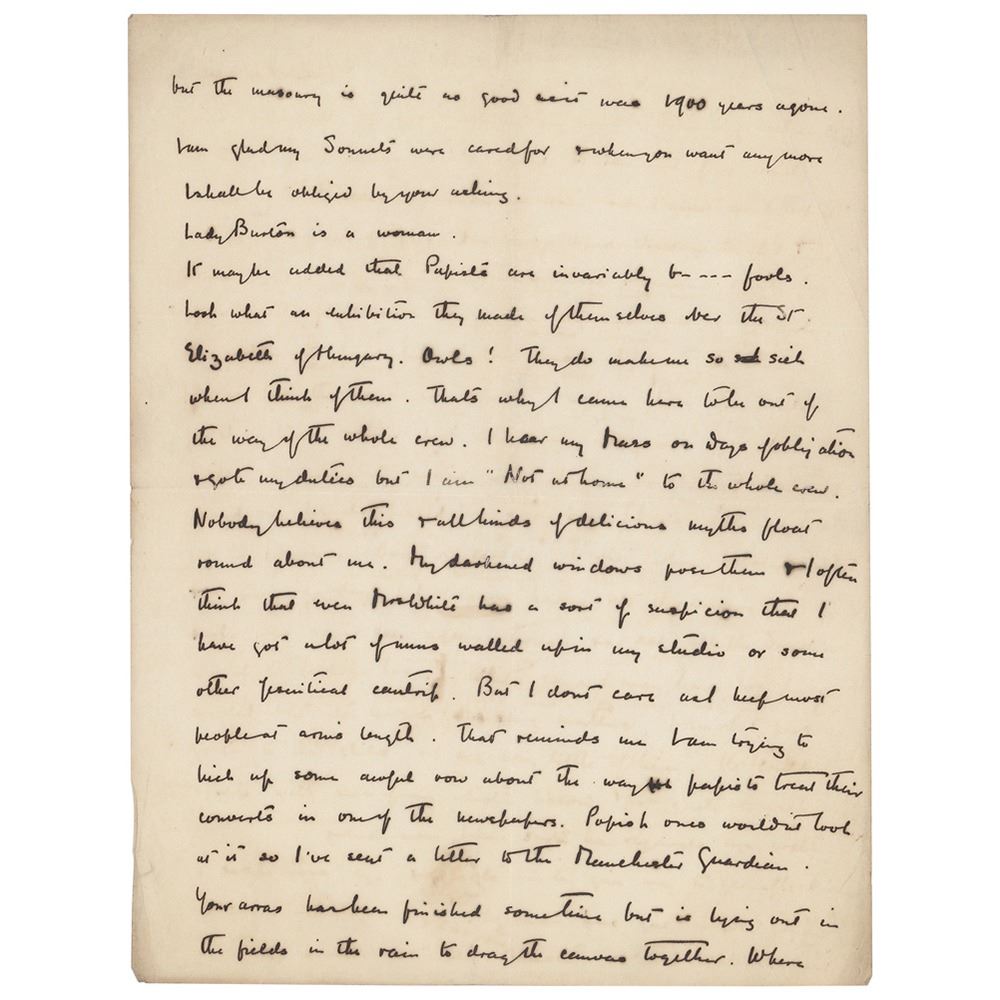 but the masonry is quite as good as it was 1900 years agone.
I am glad my Sonnets were cared for & when you want any more
I shall be obliged by your asking.
Lady Burton is a woman.
It may be added that Papists are invariably b- --- fools.
Look what an exhibition they made of themselves over the St.
Elizabeth of Hungary. Owls! They do make me so sick
when I think of them. That's why I came here to be out of
the way of the whole crew. I hear my Mass on days of obligation
& gote my duties but I am "Not at home" to the whole crew.
Nobody believes this & all kinds of delicious myths float
round about me. My darkened windows pose them & I often
think that even Mrs White has a sort of suspicion that I
have got a lot of nuns walled up in my studio or some
other Jesuitical cantrip. But I dont care and keep most
people at arms length. That reminds me I am trying to
kick up some awful row about the way papists treat their
converts in one of the newspapers. Popish ones wouldn't look
at it so I've sent a letter to the Manchester Guardian.
Your arras has been finished sometime but is lying out in
the fields in the rain to drag the canvas together. Where